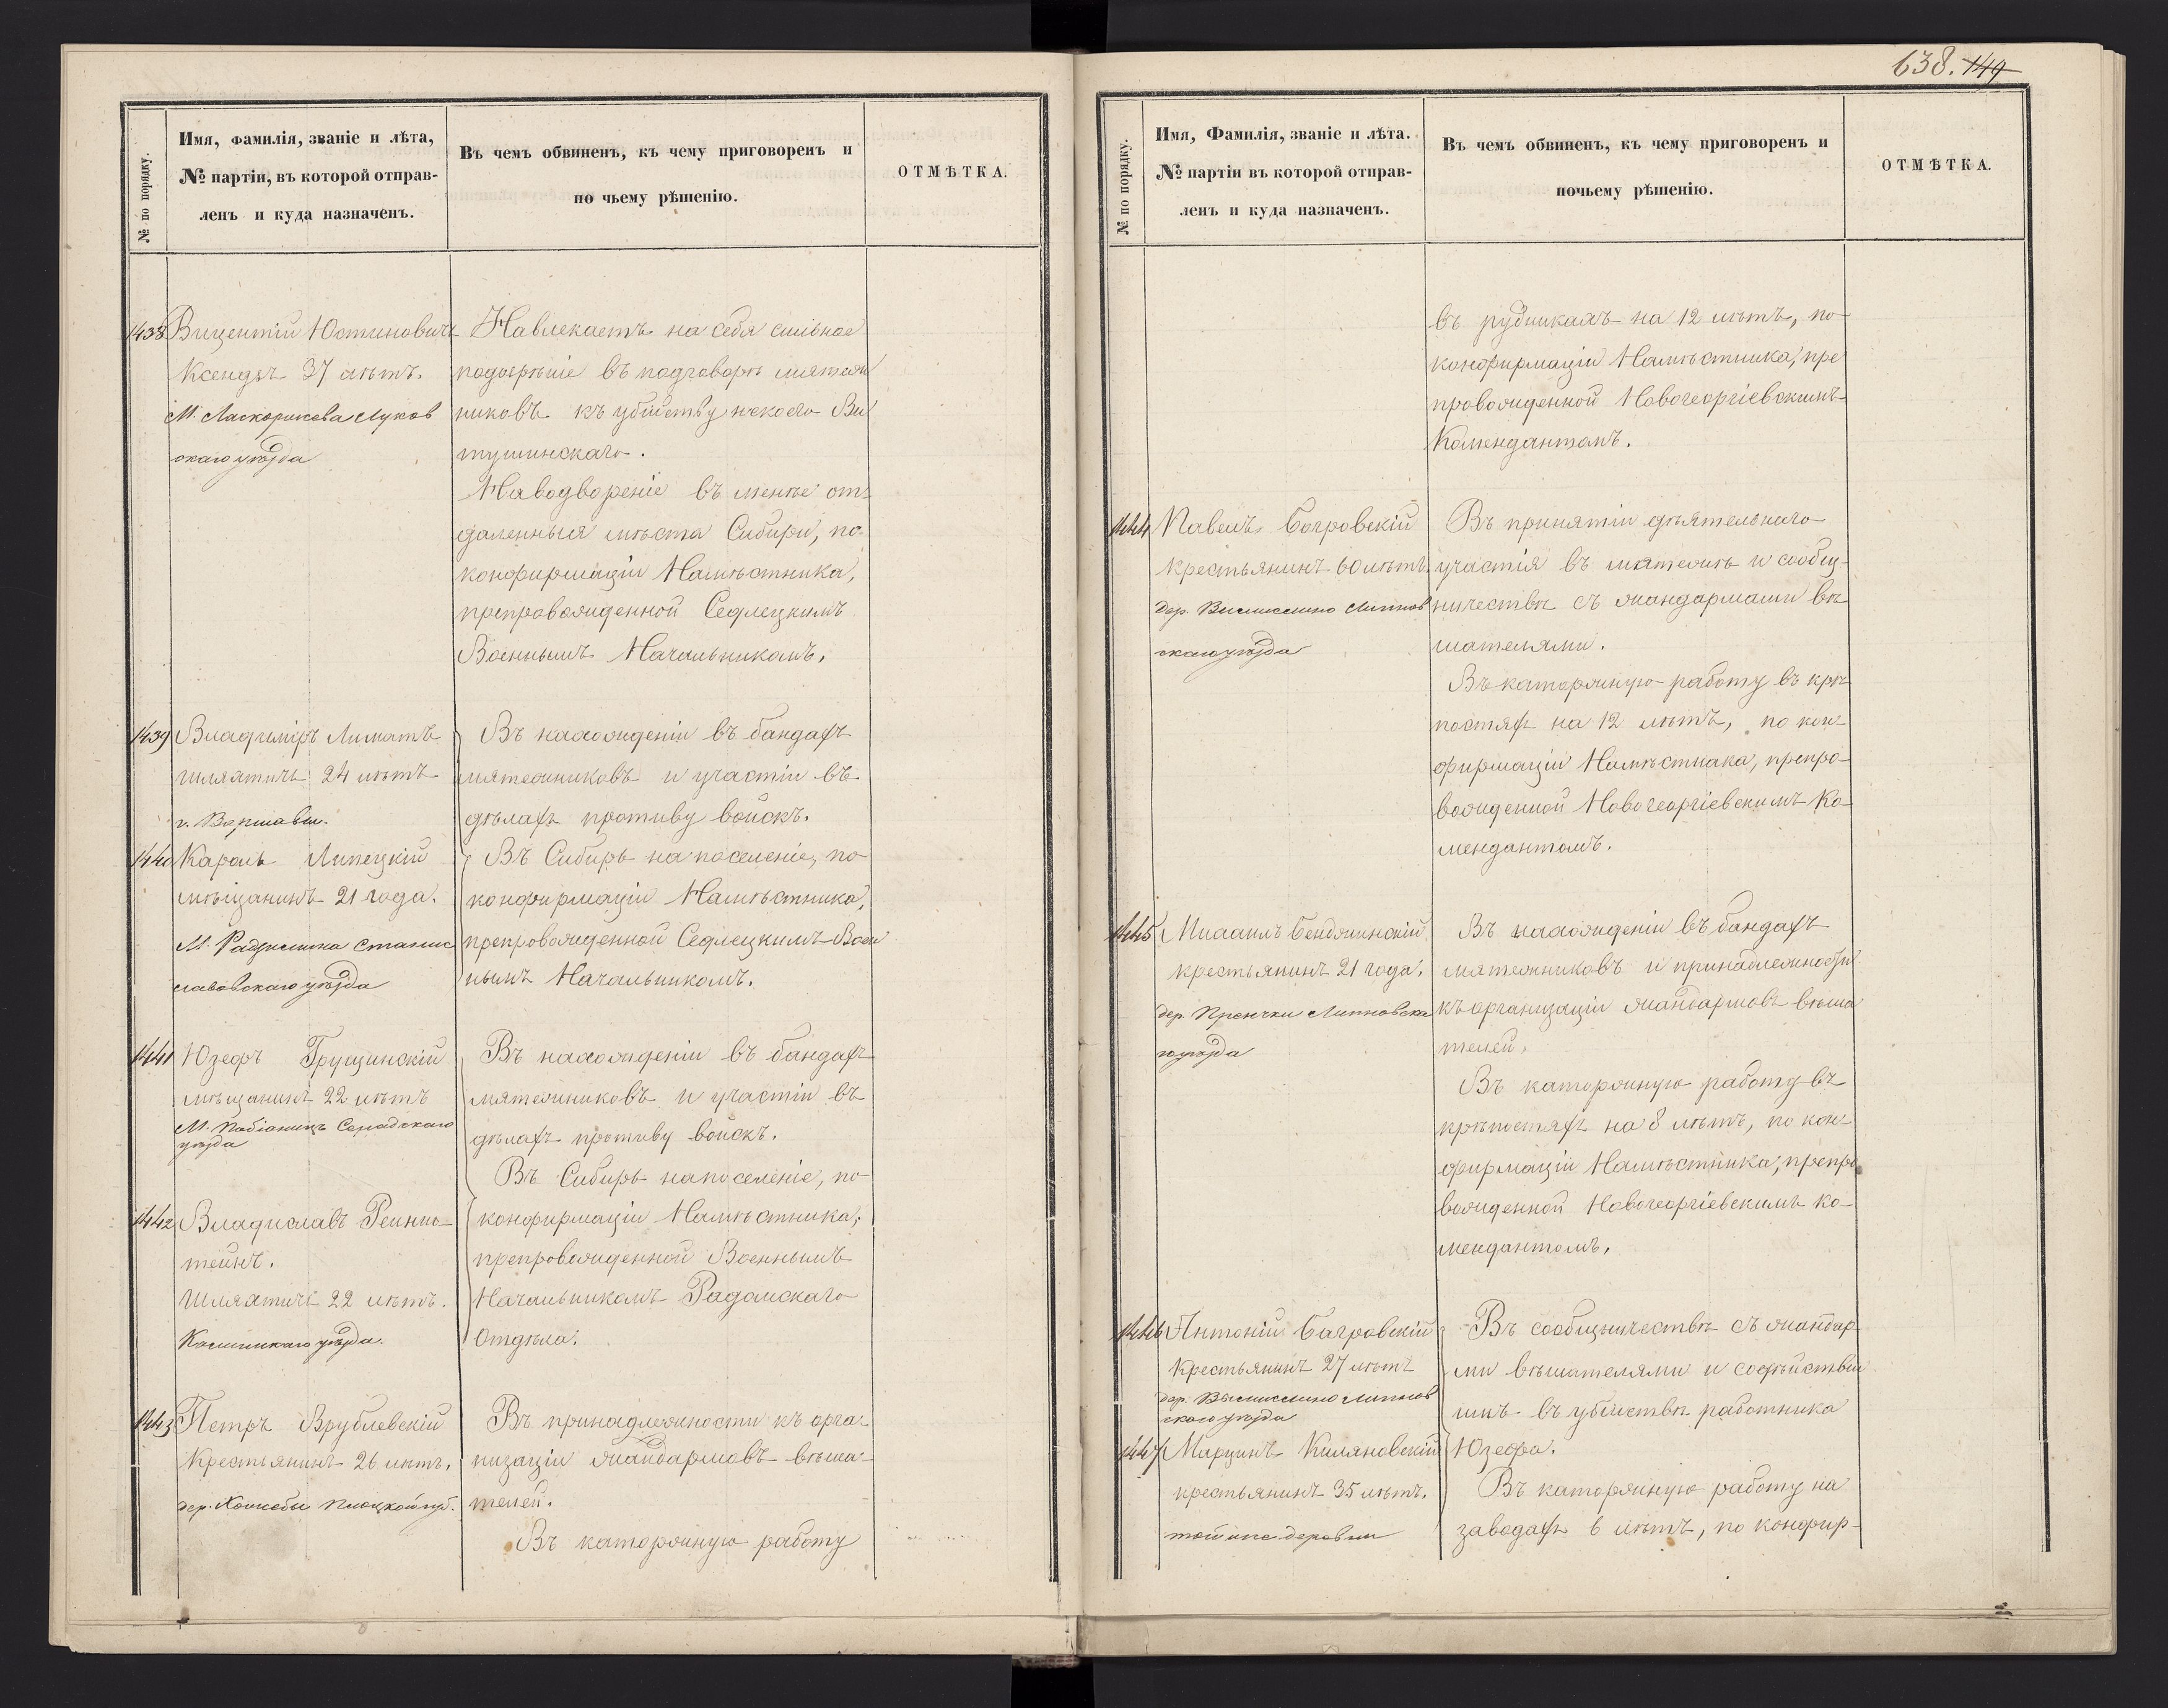 638. 149
№ по порядку.
Имя, фамилія, званіе и лѣта,
№ партіи, въ которой отправ-
ленъ и куда назначенъ.
Въ чемъ обвиненъ, къ чему приговоренъ и
по чьему рѣшенію.
ОТМѢТКА.
1438 Вицентій Юстиновичъ
Ксендзъ 37 лѣтъ.
М. Ласкоржева Луков
скаго уѣзда
Навлекаетъ на себя сильное
подозрѣніе въ подговорѣ мятеж
никовъ къ убійству некоего Ви
тушинскаго.
На водвореніе въ менѣе от
даленныя мѣста Сибири, по
конфирмаціи Намѣстника,
препровожденной Седлецкимъ
Военнымъ Начальникомъ.
1439 Владиміръ Лиматъ
шляхтичъ 24 лѣтъ
г. Варшавы.
1440 Кароль Липецкій
мѣщанинъ 21 года.
М. Радзимина Станис
лавовскаго уѣзда
Въ нахожденіи въ бандахъ
мятежниковъ и участіи въ
дѣлахъ противу войскъ.
Въ Сибирь на поселеніе, по
конфирмаціи Намѣстника,
препровожденной Седлецкимъ Воен
нымъ Начальникомъ.
1441 Юзефъ Грущинскій
мѣщанинъ 22 лѣтъ
М. Пабіаницъ Серадскаго
уѣзда
1442 Владиславъ Рейнш-
тейнъ.
Шляхтичъ 22 лѣтъ.
уѣзда.
Въ нахожденіи въ бандахъ
мятежниковъ и участіи въ
дѣлахъ противу войскъ.
Въ Сибирь на поселеніе, по
конфирмаціи Намѣстника,
препровожденной Военнымъ
Начальникомъ Радомскаго
Отдѣла.
1443 Петръ Врублевскій
Крестьянинъ 26 лѣтъ,
дер. Плоцкой губ.
Въ принадлежности къ орга-
низаціи жандармовъ вѣша-
телей.
Въ каторжную работу
№ по порядку.
Имя, Фамилія, званіе и лѣта.
№ партіи въ которой отправ-
ленъ и куда назначенъ.
Въ чемъ обвиненъ, къ чему приговоренъ и
почьему рѣшенію.
ОТМѢТКА.
въ рудникахъ на 12 лѣтъ, по
конфирмаціи Намѣстника, пре
провожденной Новогеоргіевскимъ
Комендантомъ.
1444 Павелъ Багровскій
крестьянинъ 60 лѣтъ.
дер. Липнов
скаго уѣзда
Въ принятіи дѣятельнаго
участія въ мятежѣ и сообщ-
ничествѣ съ жандармами вѣ
шателями.
Въ каторжную работу въ крѣ
постяхъ на 12 лѣтъ, по кон-
фирмаціи Намѣстника, препро-
вожденной Новогеоргіевскимъ Ко-
мендантомъ.
1445 Михаилъ Бенджинскій
крестьянинъ 21 года.
дер. Пренчки Липновска
го уѣзда
Въ нахожденіи въ бандахъ
мятежниковъ и принадлежности
къ организаціи жандармовъ вѣша
телей.
Въ каторжную работу въ
крѣпостяхъ на 8 лѣтъ, по кон-
фирмаціи Намѣстника, препро
вожденной Новогеоргіевскимъ ко-
мендантомъ.
1446 Антоній Багровскій
Крестьянинъ 27 лѣтъ
дер. Липнов
скаго уѣзда
1447 Марцинъ Киляновскій
крестьянинъ 35 лѣтъ.
той же деревни
Въ сообщничествѣ съ жандар-
ми вѣшателями и содѣйствіи
имъ въ убійствѣ работника
Юзефа.
Въ каторжную работу на
заводахъ 6 лѣтъ, по конфир-